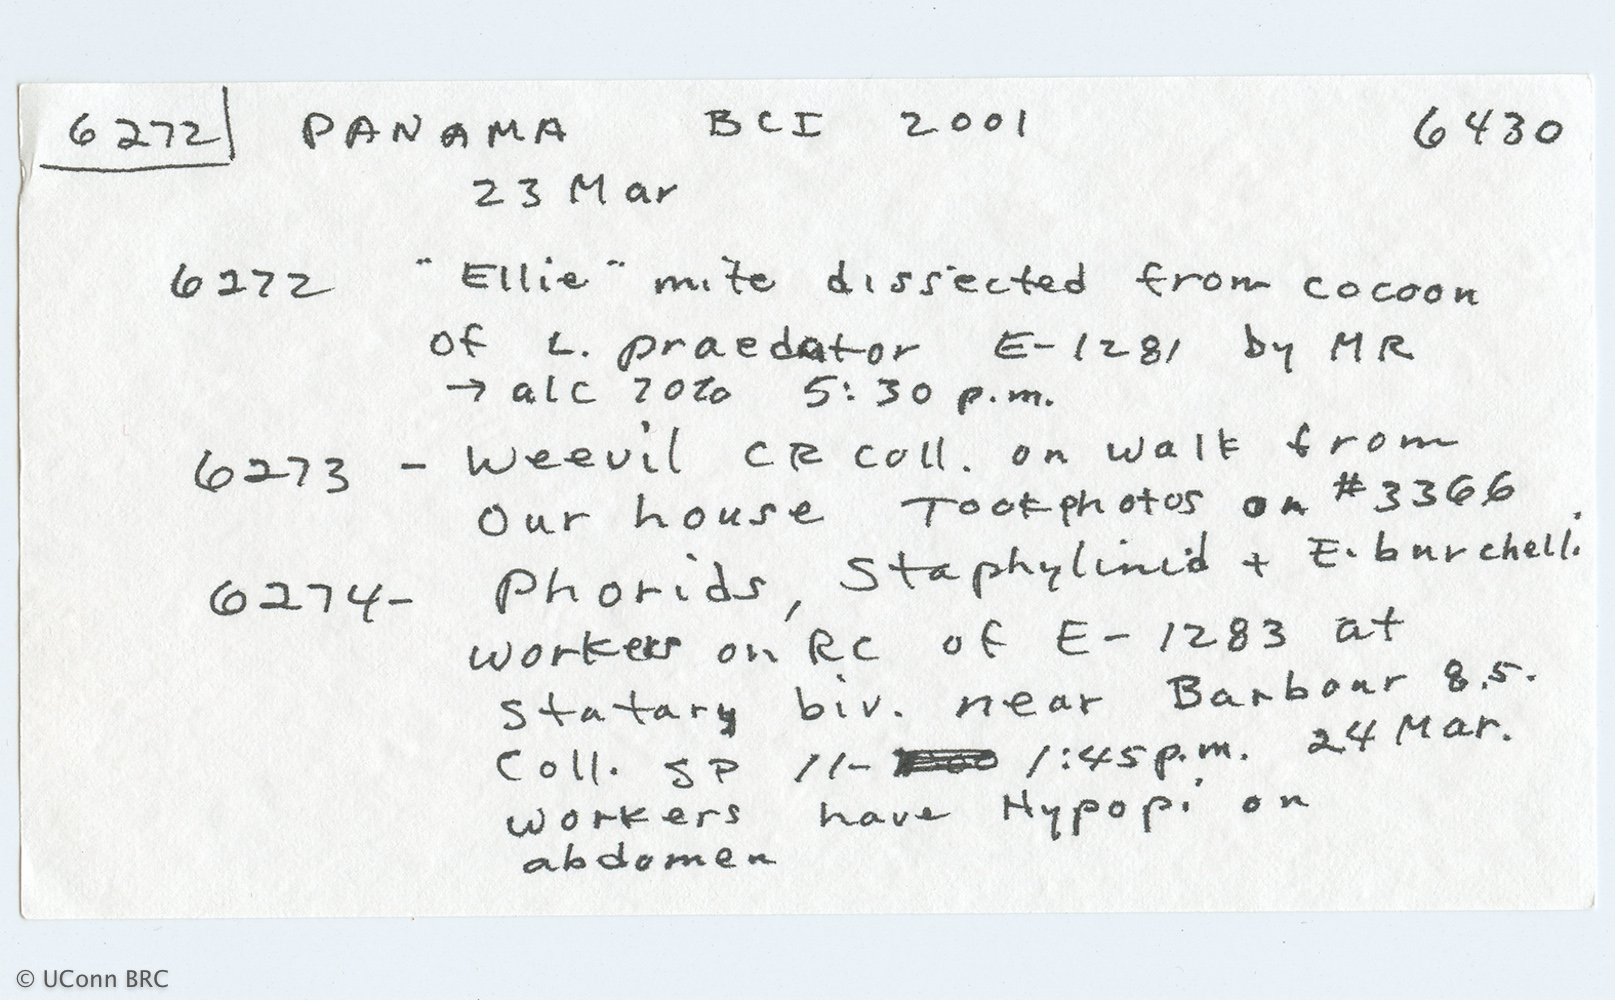 6272 PANAMA BCI 2001 6430
23 Mar
6272 "Ellie" mite dissected from cocoon
of L. praedator E-1281 by MR
→ alc 70% 5:30 p.m.
6273 - Weevil CR coll. on walk from
our house Took photos on #3366.
6274- Phorids, Staphylinid + E. burchelli
workers on RC of E-1283 at
statary biv. near Barbour 8.5.
Coll. SP 11- 1:45 p.m. 24 Mar.
workers have Hypopi on
abdomen
© UConn BRC